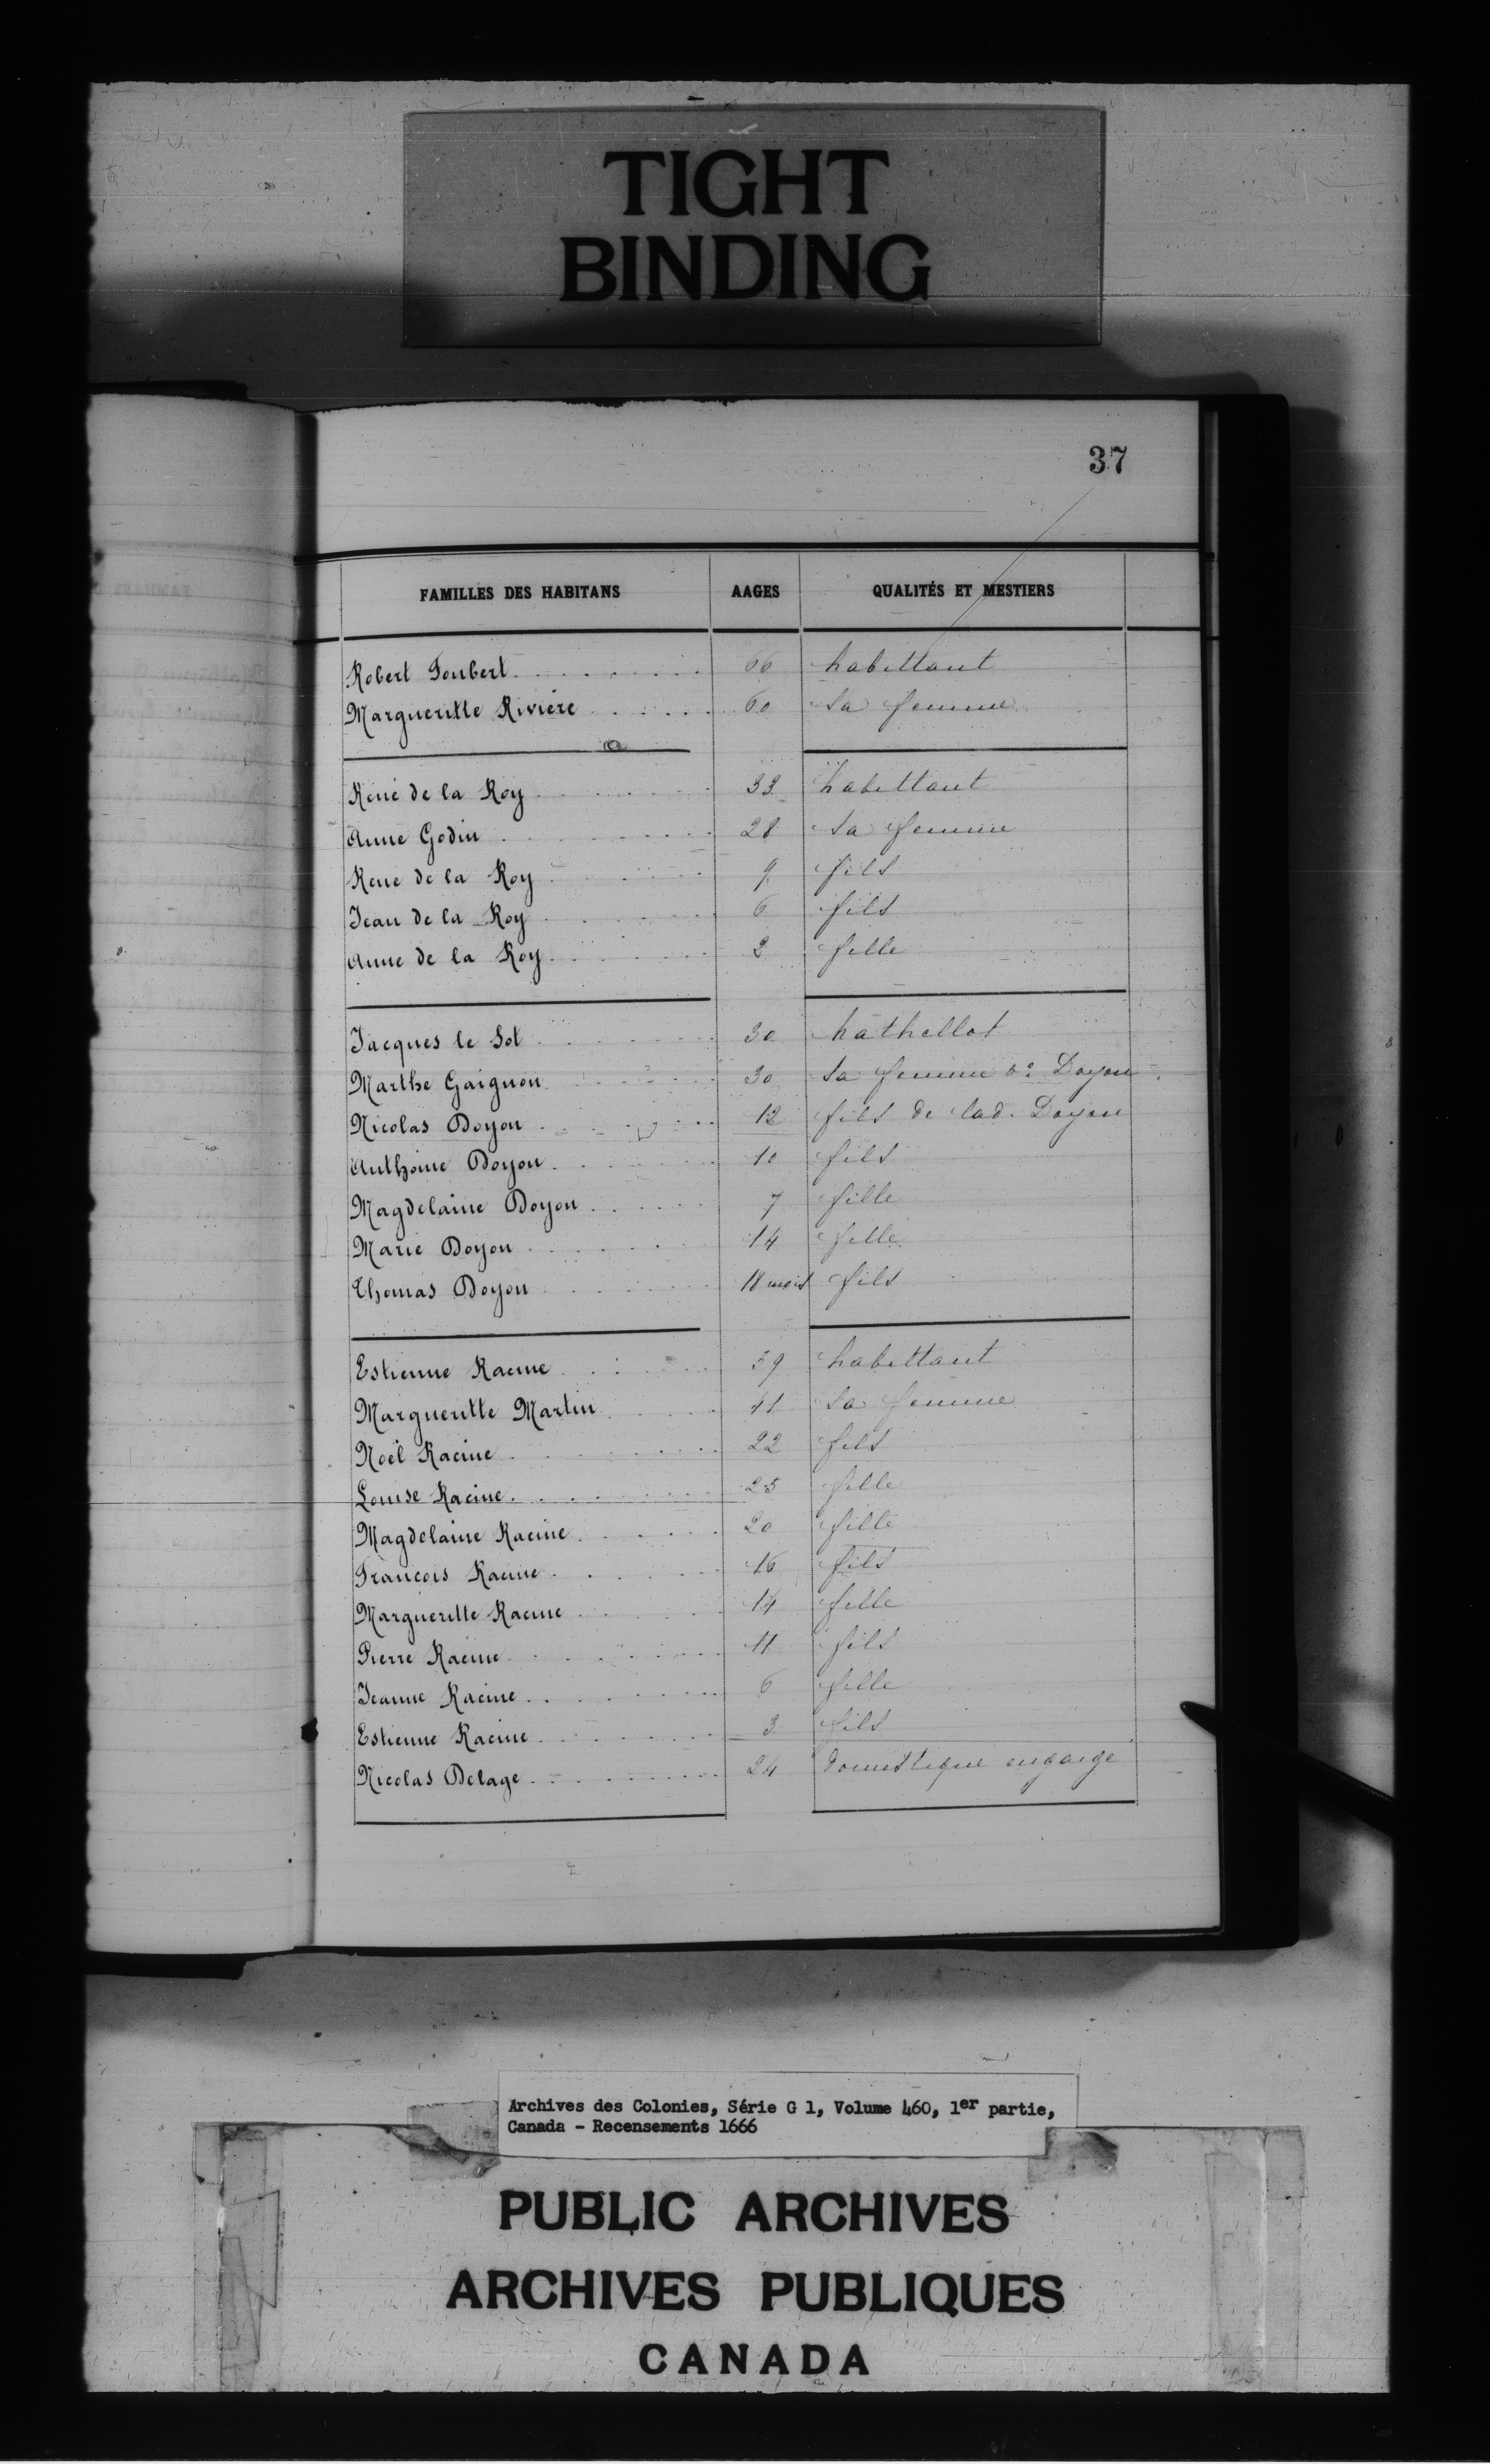 TIGHT
BINDING
37
FAMILLES DES HABITANS AAGES QUALITÉS ET MESTIERS
Robert Foubert 66 habittant
Margueritte Riviere 60 sa femme
René de la Roy 33 habittant
Anne Godin 28 sa femme
Rene de la Roy 9 fils
Jean de la Roy 6 fils
Anne de la Roy fille
Jacques le Sot 30 mathellot
Marthe Gaignon 30 sa femme Doyon
Nicolas Doyon 12 fils de lad. Doyon
Anthoine Doyon 10 fils
Magdelaine Doyon 7 fille
Marie Doyon 14 fille
Thomas Doyon 18 mois fils
Estienne Racine 59 habittant
Margueritte Martin 41 sa femme
Noël Racine 22 fils
Louise Racine 25 fille
Magdelaine Racine 20 fille
Francois Racine 16 fils
Margueritte Racine 14 fille
Pierre Racine 11 fils
Jeanne Racine 6 fille
Estienne Racine 3 fils
Nicolas Delage 24 domestique engaigé
Archives des Colonies, Série G 1, Volume 460, 1er partie,
Canada - Recensements 1666
PUBLIC ARCHIVES
ARCHIVES PUBLIQUES
CANADA